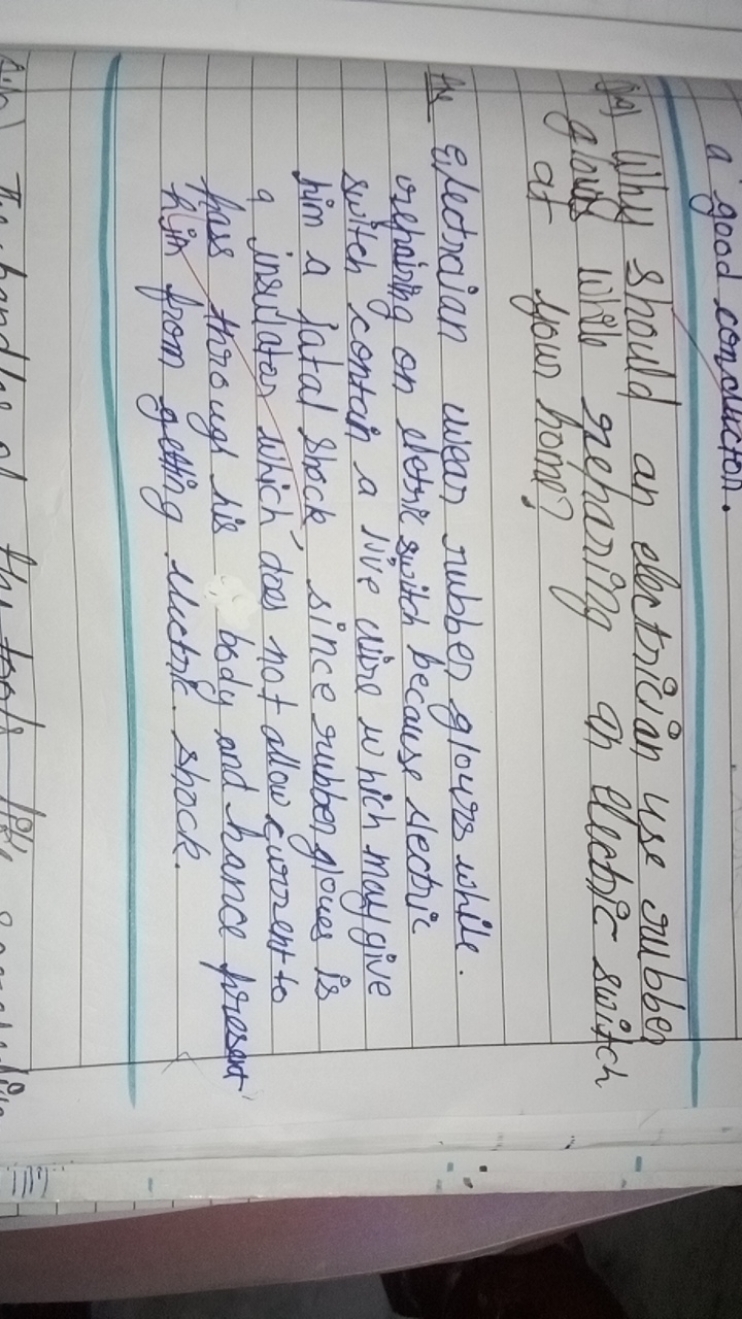 a good conductor.
Why should an electrician use rubber
gloves while reharing an electric switch
at your home?
Ans Electrcian wear rubber gloves while.
repairing on eletric switch because electric
switch contain a live wire which may give
him a fatal shock since rubber gloves is
a insulator which does not allow current to
pass through his body and hance present
him from getting electric shock.
The handles of the tools like